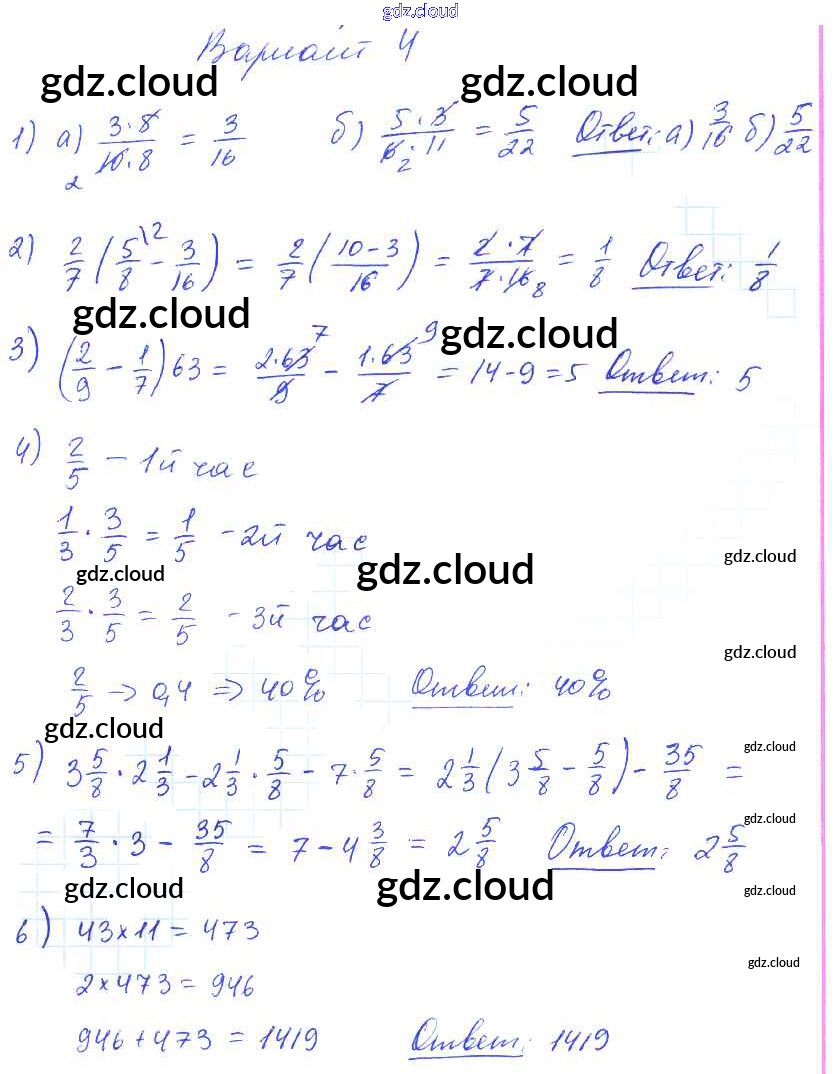 gdz.cloud
Вариант 4
gdz.cloud gdz.cloud
1) а) 3·8/16·8 = 3/16 б) 5·3/6·11 = 5/22 Ответ: а) 3/16 б) 5/22
2 2
2) 2/7 (5/8 \2 - 3/16) = 2/7 (10-3/16) = 2·7/7·16 8 = 1/8 Ответ: 1/8
gdz.cloud gdz.cloud
3) (2/9 - 1/7) 63 = 2·63/9 7 - 1·63/7 9 = 14-9=5 Ответ: 5
4) 2/5 - 1й час
1/3 · 3/5 = 1/5 - 2й час
gdz.cloud gdz.cloud gdz.cloud
2/3 · 3/5 = 2/5 - 3й час
gdz.cloud
2/5 → 0,4 ⇒ 40% Ответ: 40%
gdz.cloud gdz.cloud
5) 3 5/8 · 2 1/3 - 2 1/3 · 5/8 - 7 · 5/8 = 2 1/3 (3 5/8 - 5/8) - 35/8 =
gdz.cloud
= 7/3 · 3 - 35/8 = 7 - 4 3/8 = 2 5/8 Ответ: 2 5/8
gdz.cloud gdz.cloud gdz.cloud
6) 43×11 = 473
gdz.cloud
2×473 = 946
946+473 = 1419 Ответ: 1419